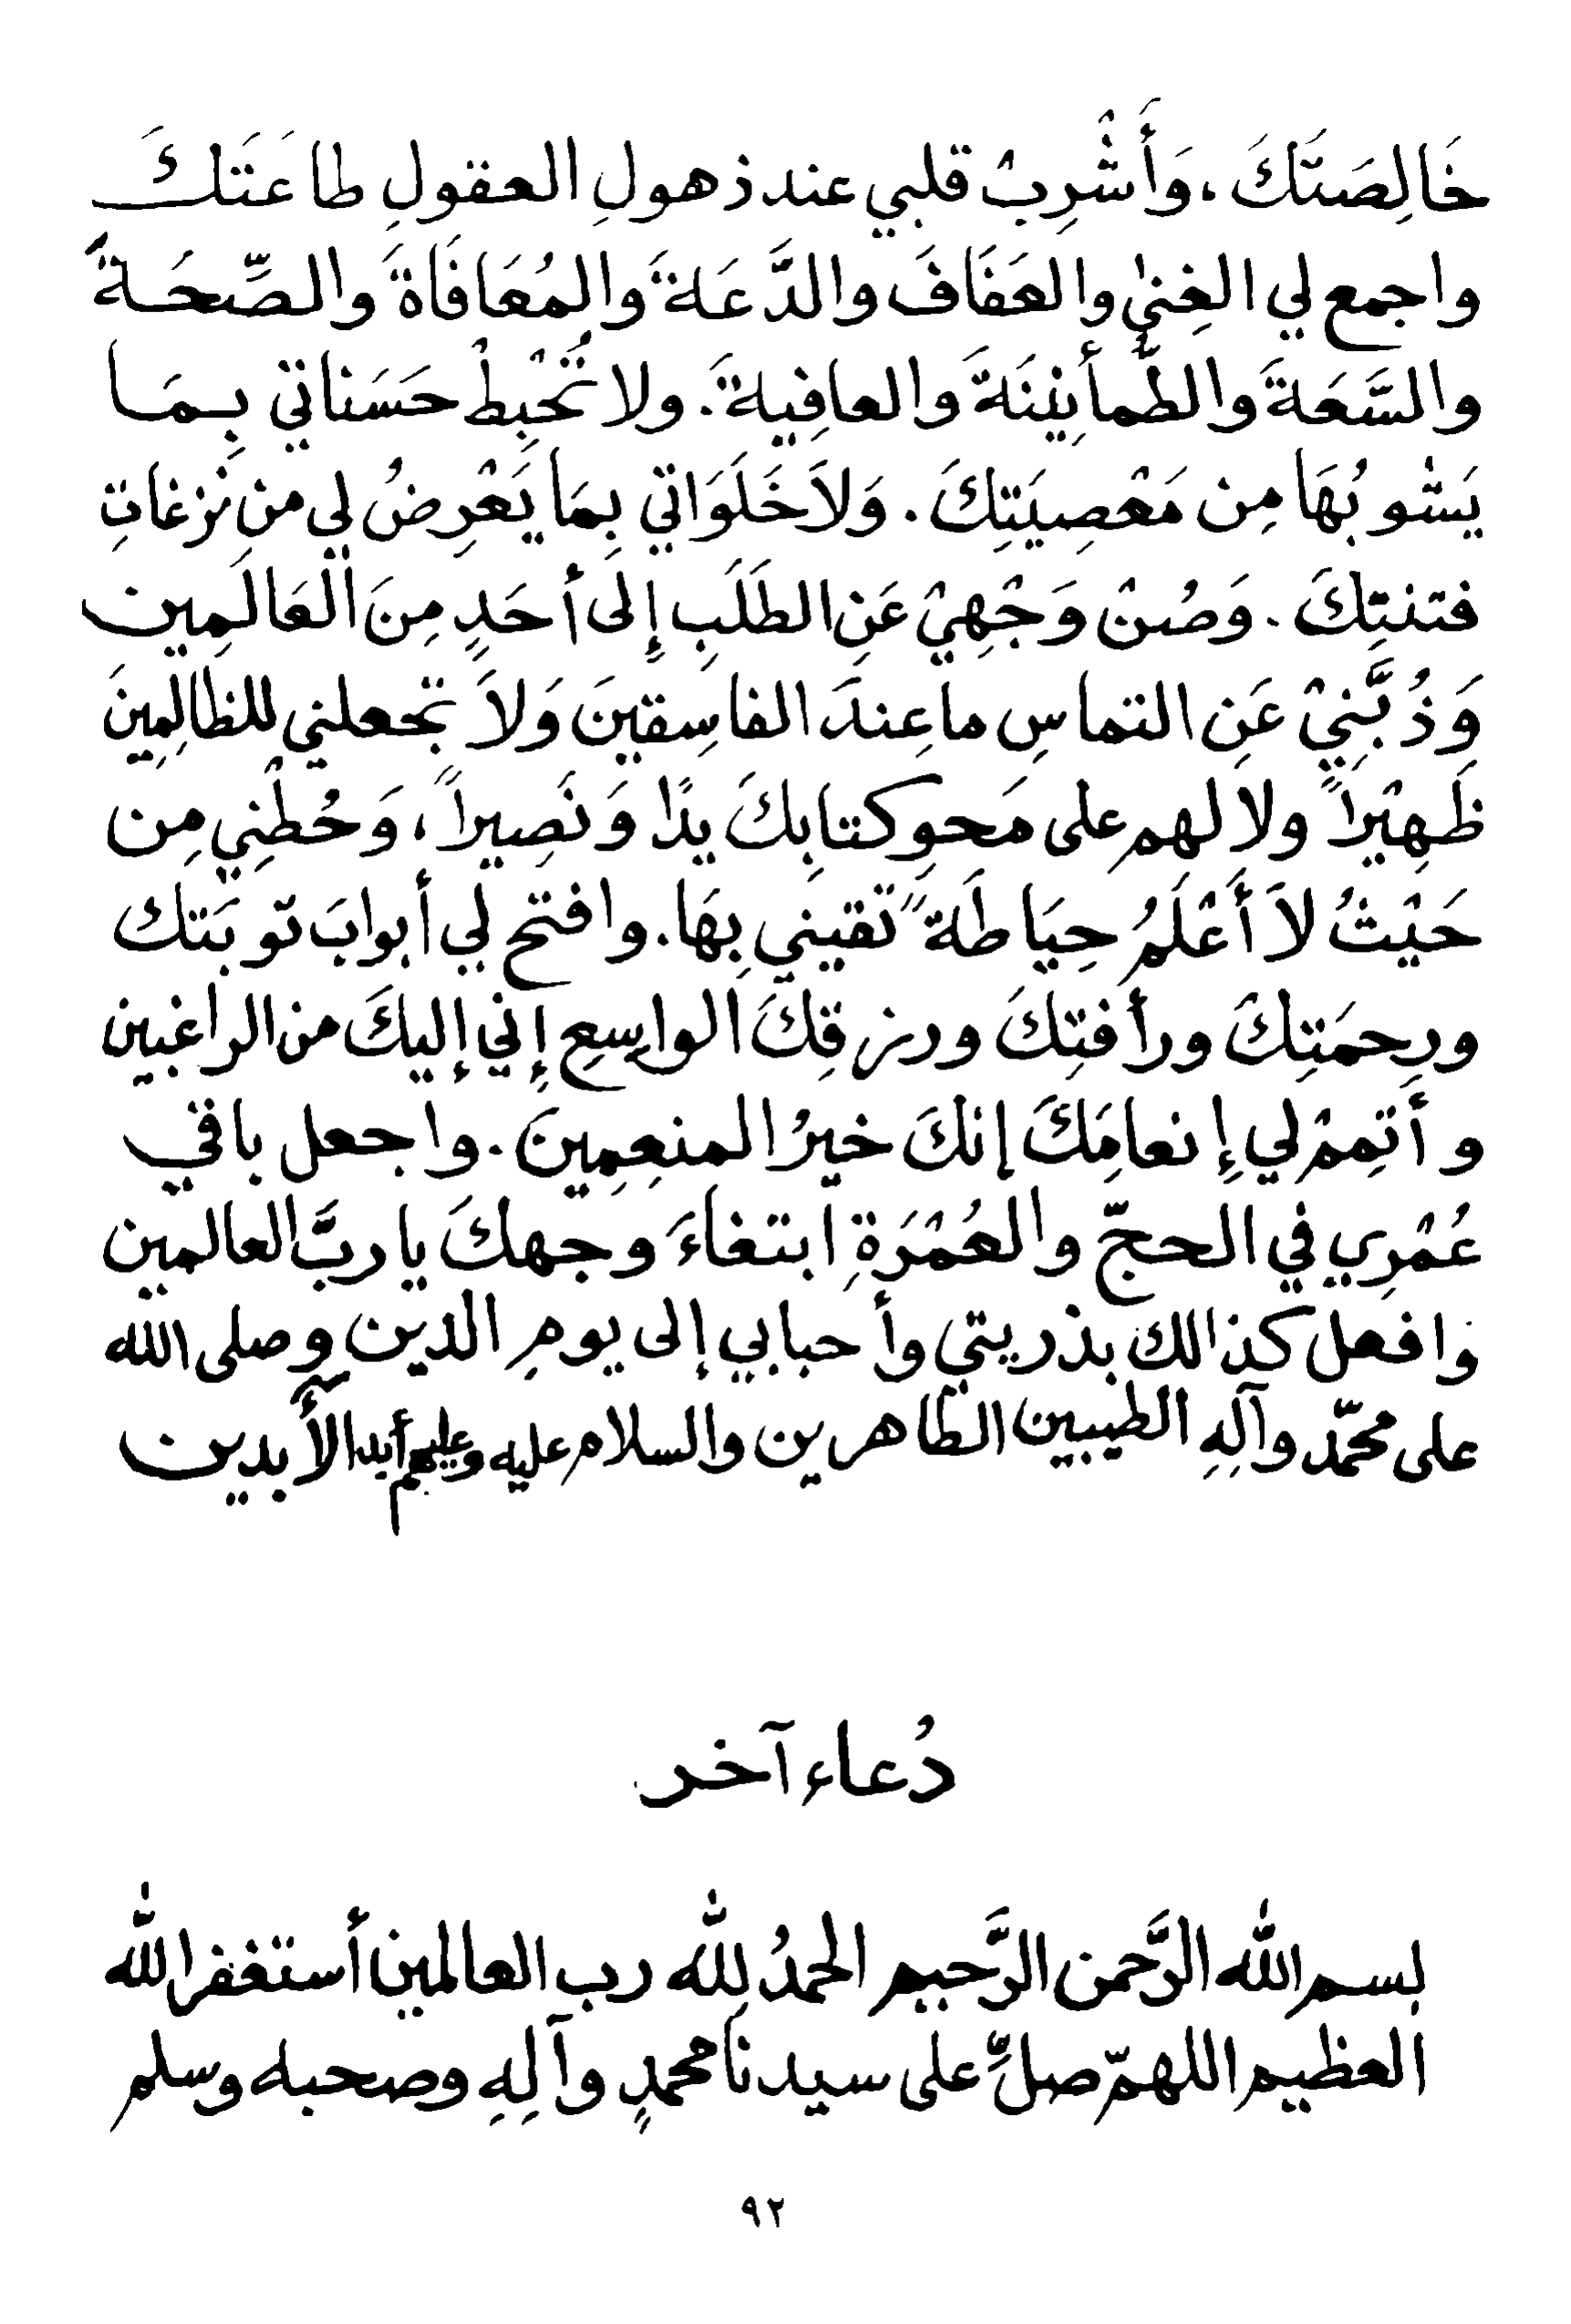 خَالِصَتَكَ ، وَأَشْرِبْ قلبي عند ذهولِ العقولِ طاعَتَكَ
واجمع لي الغِنىٰ والعَفَافَ والدَّعَةَ والمُعَافَاةَ والصِّحَةَ
والسَّعَةَ والطُّمأنِينَةَ والعافِيةَ . ولا تُحْبِطْ حَسَناتي بِمَا
يَشُوبُهَا مِن مَعْصِيَتِكَ . وَلاَ خَلَوَاتي بِمَا يَعْرِضُ لي من نَزغاتِ
فتنتِكَ . وَصُنْ وَجْهِيْ عَنِ الطَلَبِ إِلَى أحَدٍ مِنَ العَالَمِين
وَذُبَّنِيْ عَنِ التماسِ ما عِندَ الفاسِقِينَ وَلاَ تجعلني للظالِمِينَ
ظَهِيْراً ولا لهم على مَحوِ كتابِكَ يدًا وَنَصِيراً ، وَحُطْنِي مِن
حَيْثُ لاَ أَعْلَمُ حِيَاطَةً تَقيني بِهَا . وافتح لي أبوابَ توبَتك
ورحمَتِكَ ورأفتِكَ ورزقِكَ الواسِعِ إِني إليكَ من الراغبين
وأَتمِمْ لي إِنعامِكَ إنكَ خيرُ المنعِمِينَ . واجعل باقي
عُمْرِي في الحجّ والعُمْرَةِ ابتغاءَ وجهكَ يا ربَّ العالمين
وافعل كذالك بذريتي وأحبابي إلى يومِ الدين وصلى الله
على محمّد وآلِهِ الطيبين الطّاهرين والسلام عليه وعليهم أبد الأبدين
دُعاء آخر
بسم الله الرَّحمن الرَّحيم الحمدُ لِلّٰه رب العالمين أستغفر اللّٰه
العظيم اللهمّ صلِّ على سيدنَا محمدٍ وآلِهِ وصحبه وسلم
٩٢